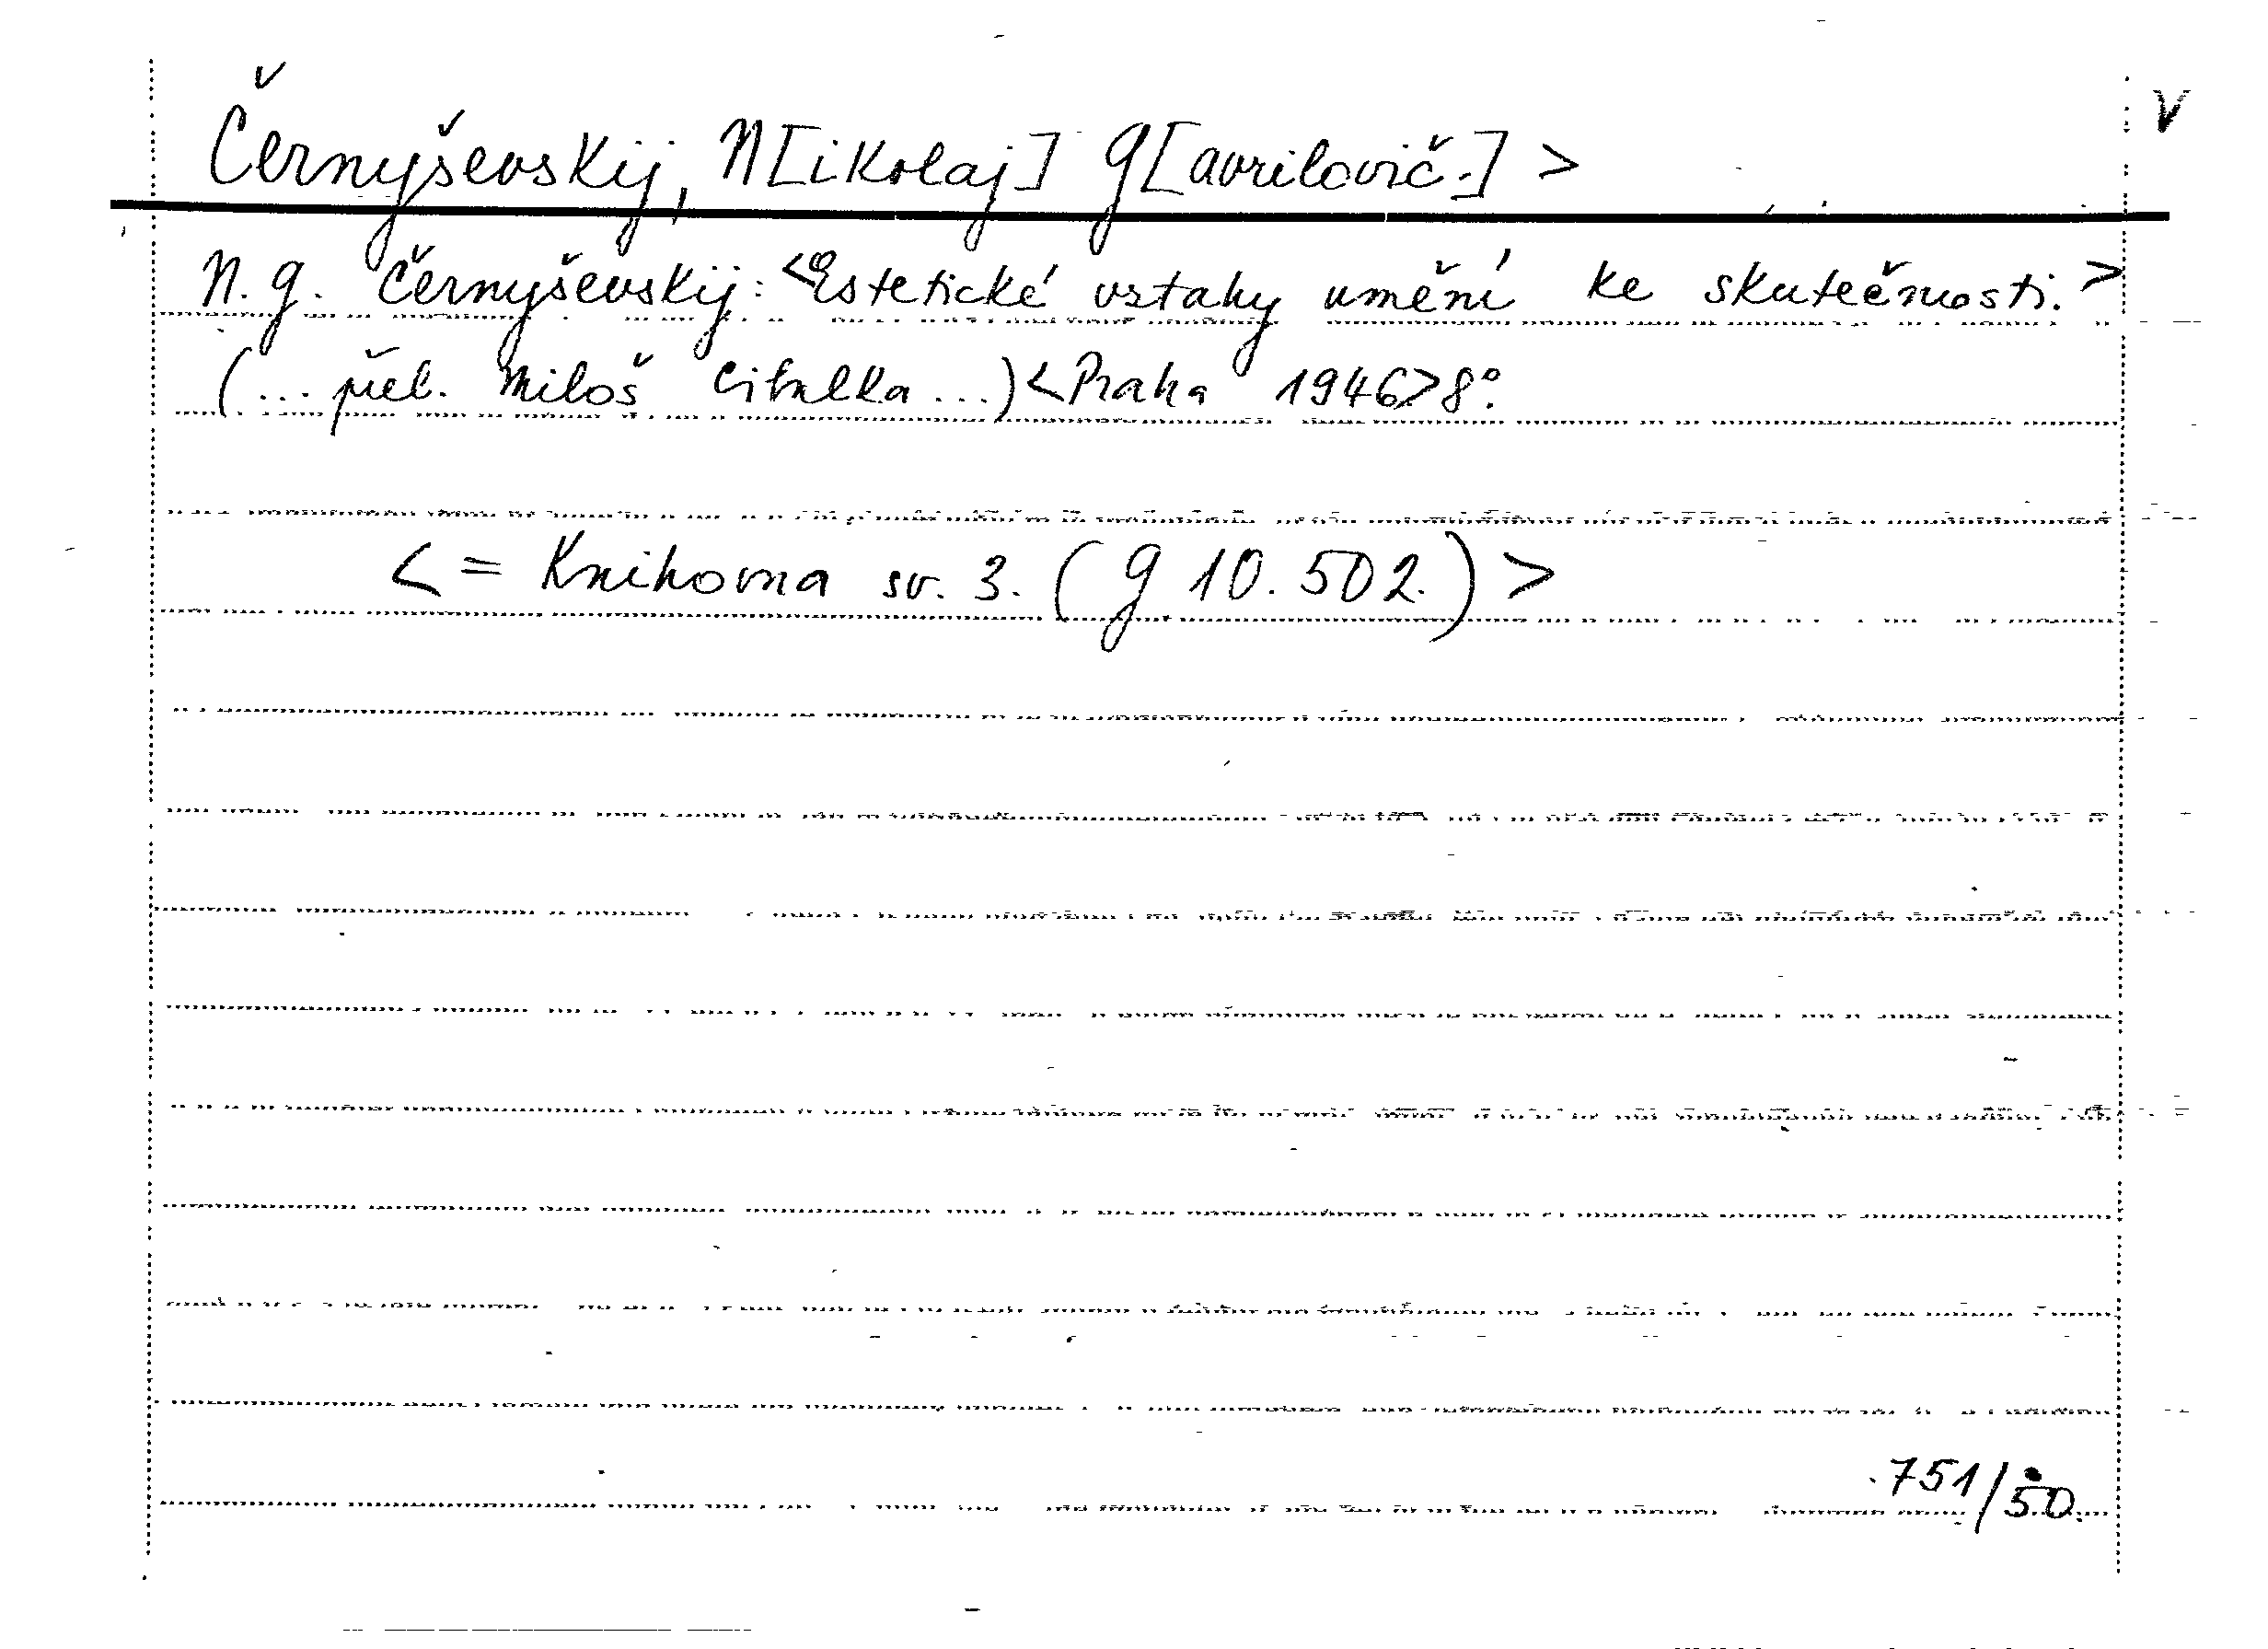 Černyševskij, N[ikolaj] G[avrilovič.] >
V
N. G. Černyševskij: <Estetické vztahy umění ke skutečnosti.>
(... přel. Miloš Cibulka ...) <Praha 1946> 8°.
< = Knihovna sv. 3. (G 10.502.) >
751/50.